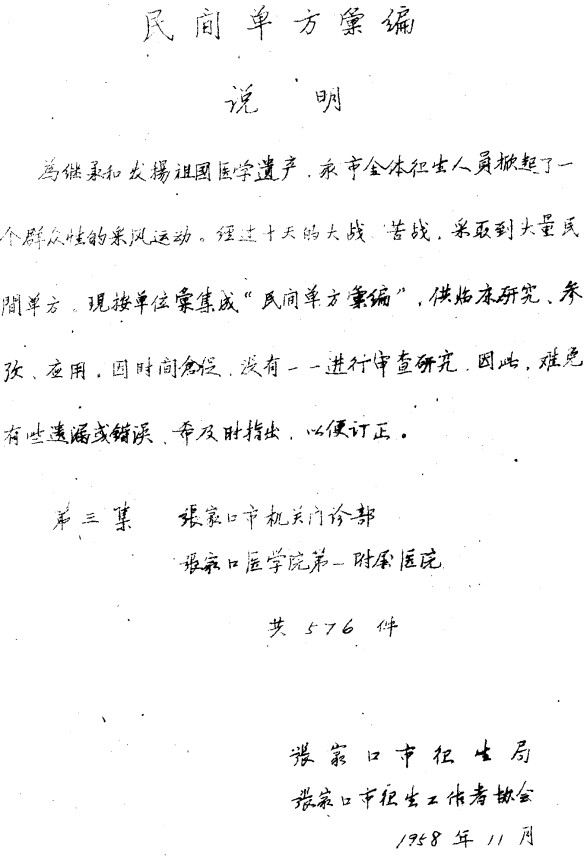 民间单方彙编
说明
為继承和发揚祖国医学遗产，我市全体衛生人员掀起了一
个群众性的采风运动。经过十天的大战、苦战，采取到大量民
間单方，現按单位彙集成“民间单方彙编”，供临床研究、参
攷、应用，因时间倉促，没有一一进行审查研究，因此，难免
有些遗漏或错误、希及时指出，以便订正。
第三集 張家口市机关门诊部
張家口医学院第一附属医院
共576件
張家口市衛生局
張家口市衛生工作者协会
1958年11月